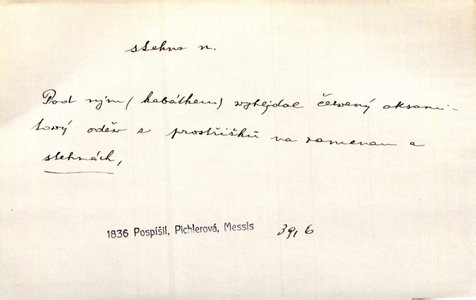 stehno n.
Pod ným (kabátkem) vyhlídal červený aksami-
tový oděv s prostřišků na ramenou a
stehnách,
1836 Pospíšil, Pichlerová, Messis 39, 6